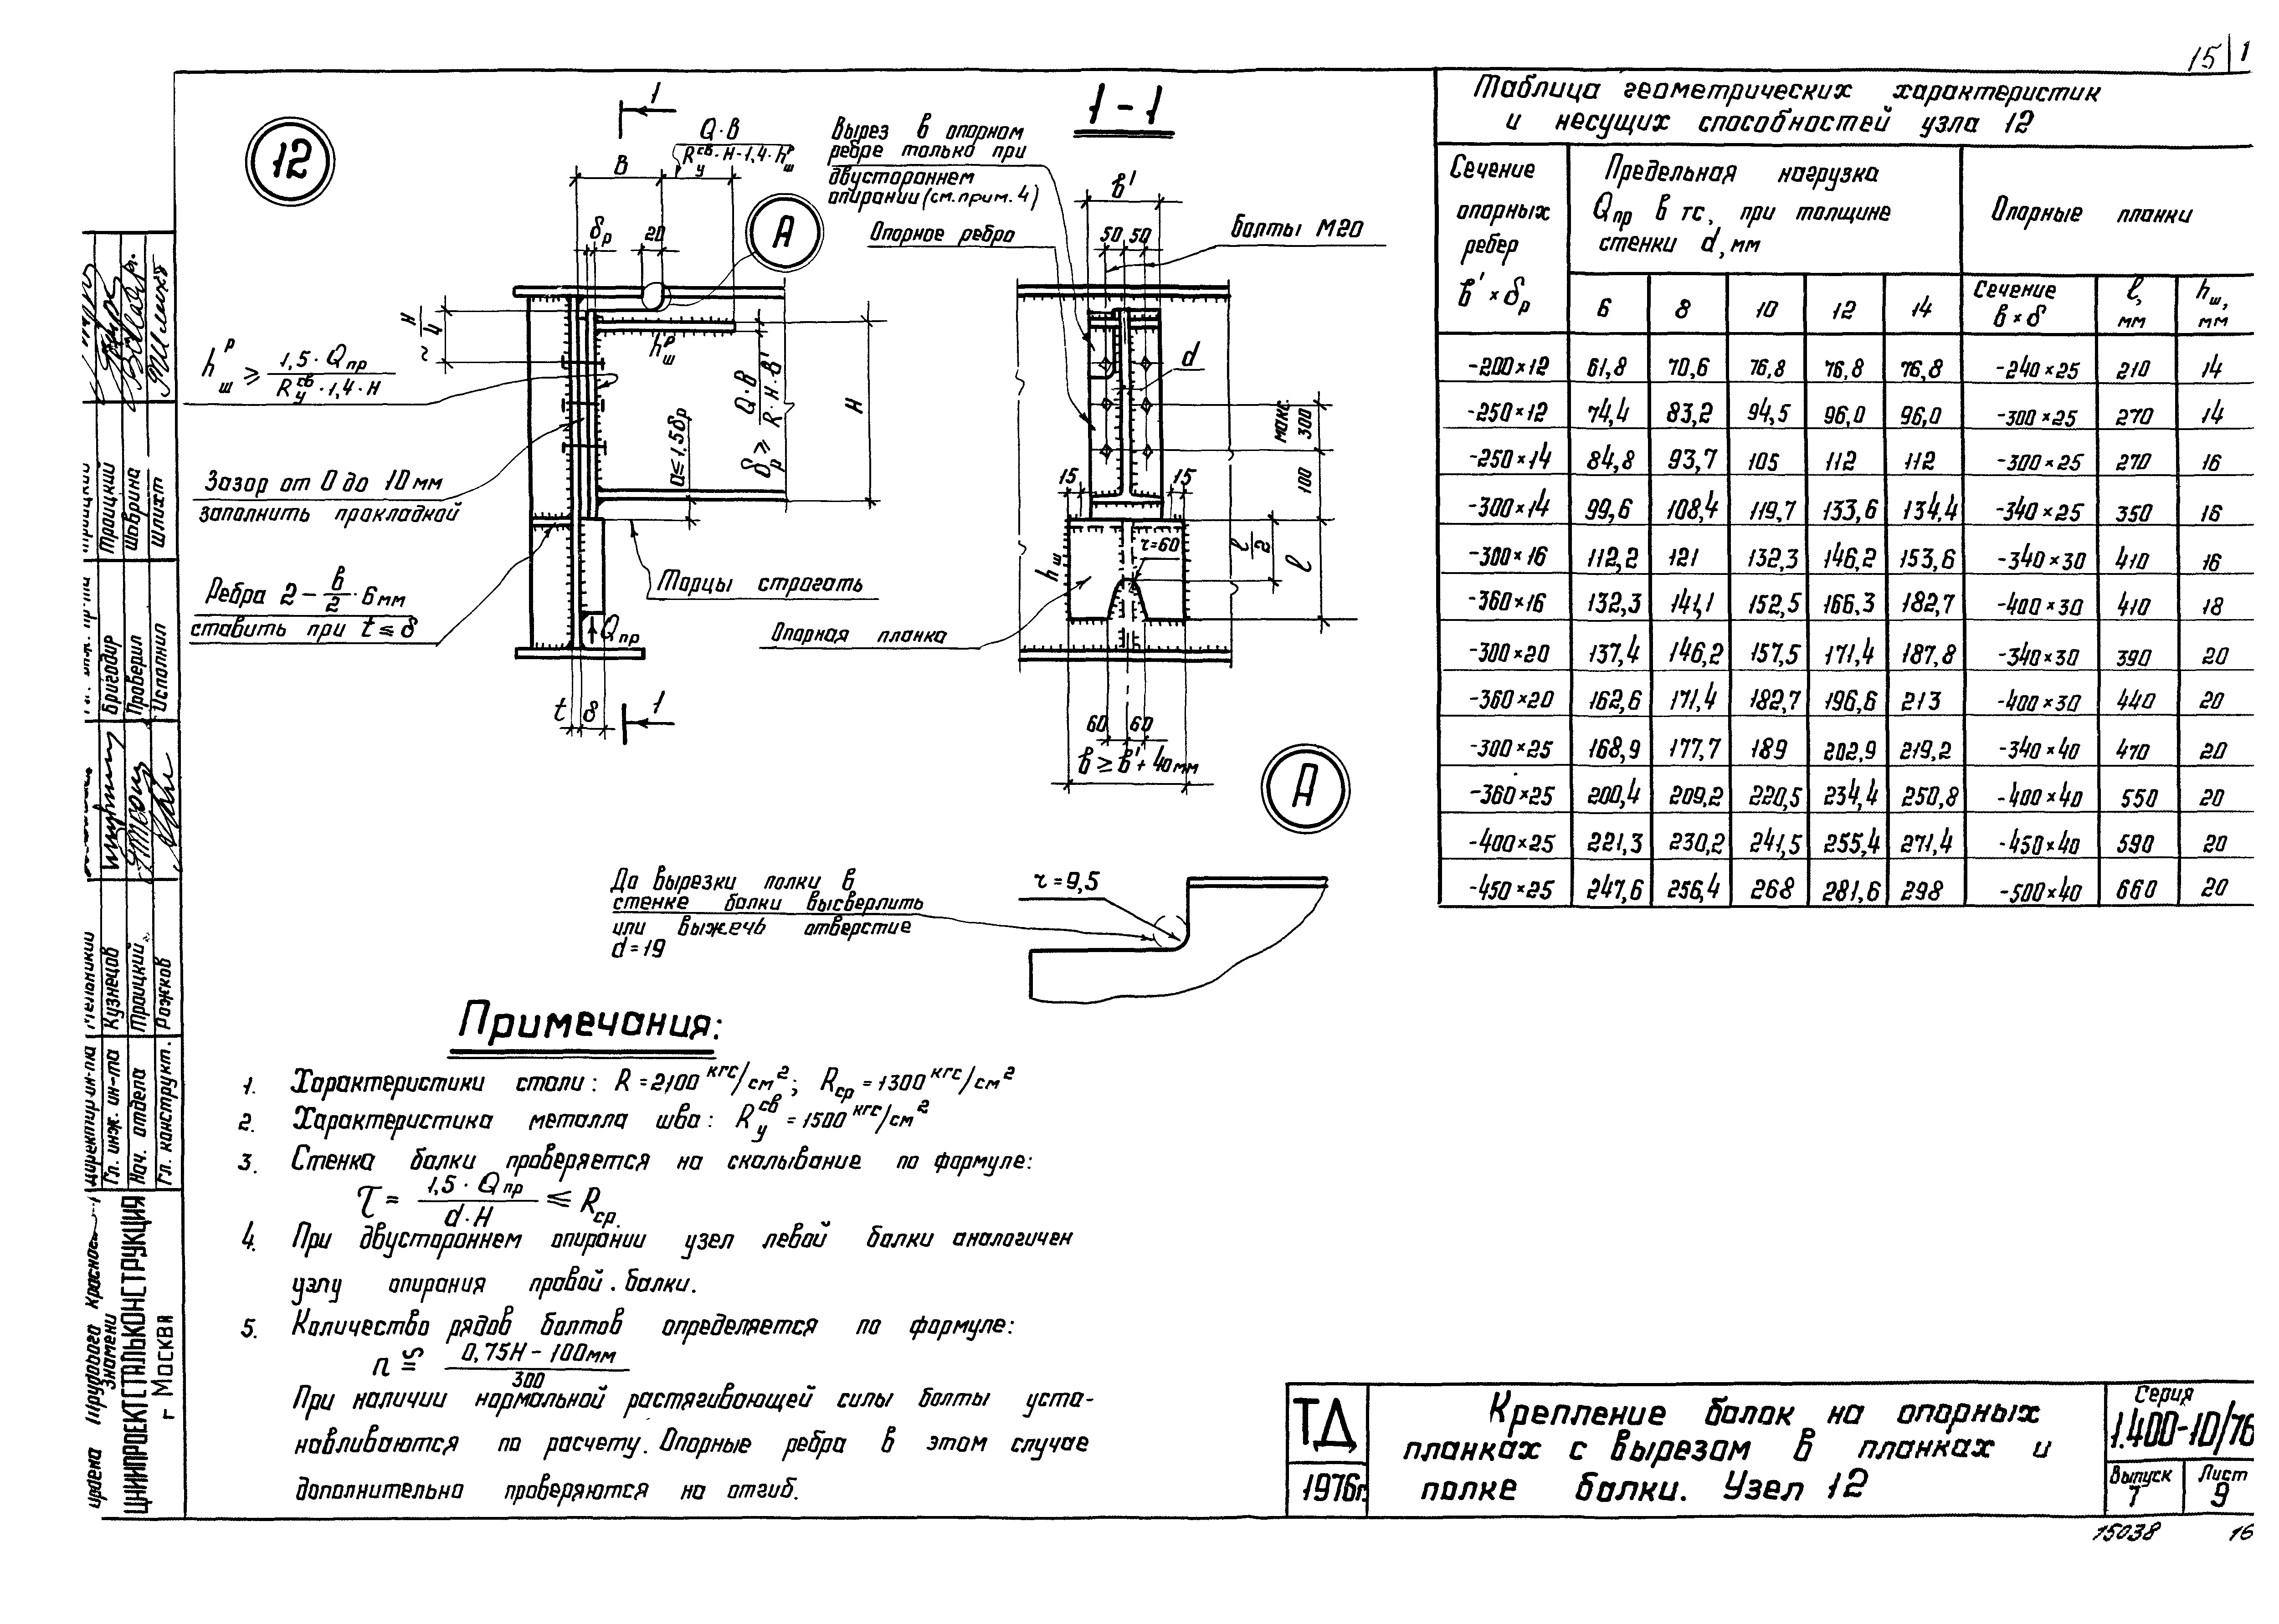 15 1
12
1
Q·в
Rусв·H·1,4·hшр
В
δр
20
А
Н/4
hшр ≥ 1,5·Qпр / Rусв·1,4·H
hшр
δр ≥ Q·в / R·H·в'
a≤1,5δр
H
Зазор от 0 до 10мм
заполнить прокладкой
Ребра 2 – в/2 · 6мм
ставить при t ≤ δ
Торцы строгать
Qпр
t δ
1
Вырез в опорном
ребре только при
двустороннем
опирании (см. прим. 4)
Опорное ребро
1-1
в'
50 50
Болты М20
d
макс. 300
100
15
15
hш
r=60
l/2
l
Опорная планка
60 60
в ≥ в'+40мм
А
До вырезки полки в
стенке балки высверлить
или выжечь отверстие
d=19
r=9,5
Таблица геометрических характеристик
и несущих способностей узла 12
Сечение опорных ребер в'×δр | Предельная нагрузка Qпр в тс, при толщине стенки d, мм | Опорные планки
6 | 8 | 10 | 12 | 14 | Сечение в×δ | l, мм | hш, мм
-200×12 61,8 70,6 76,8 76,8 76,8 -240×25 210 14
-250×12 74,4 83,2 94,5 96,0 96,0 -300×25 270 14
-250×14 84,8 93,7 105 112 112 -300×25 270 16
-300×14 99,6 108,4 119,7 133,6 134,4 -340×25 350 16
-300×16 112,2 121 132,3 146,2 153,6 -340×30 410 16
-360×16 132,3 141,1 152,5 166,3 182,7 -400×30 410 18
-300×20 137,4 146,2 157,5 171,4 187,8 -340×30 390 20
-360×20 162,6 171,4 182,7 196,6 213 -400×30 440 20
-300×25 168,9 177,7 189 202,9 219,2 -340×40 470 20
-360×25 200,4 209,2 220,5 234,4 250,8 -400×40 550 20
-400×25 221,3 230,2 241,5 255,4 271,4 -450×40 590 20
-450×25 247,6 256,4 268 281,6 298 -500×40 660 20
Примечания:
1. Характеристики стали: R=2100 кгс/см²; Rср=1300 кгс/см²
2. Характеристика металла шва: Rусв=1500 кгс/см²
3. Стенка балки проверяется на скалывание по формуле:
τ = 1,5·Qпр / d·H ≤ Rср.
4. При двустороннем опирании узел левой балки аналогичен
узлу опирания правой балки.
5. Количество рядов болтов определяется по формуле:
n ≅ 0,75H – 100мм / 300
При наличии нормальной растягивающей силы болты уста-
навливаются по расчету. Опорные ребра в этом случае
дополнительно проверяются на отгиб.
ТД
1976г.
Крепление балок на опорных
планках с вырезом в планках и
полке балки. Узел 12
Серия
1.400-10/76
Выпуск
1
Лист
9
15038 16
Троицкий
Шаврина
Шлихт
Бригадир
Проверил
Исполнил
Кузнецов
Троицкий
Рожков
Гл. инж. ин-та
Нач. отдела
Гл. конструкт.
Знамени
ЦНИИПРОЕКТСТАЛЬКОНСТРУКЦИЯ
г Москва